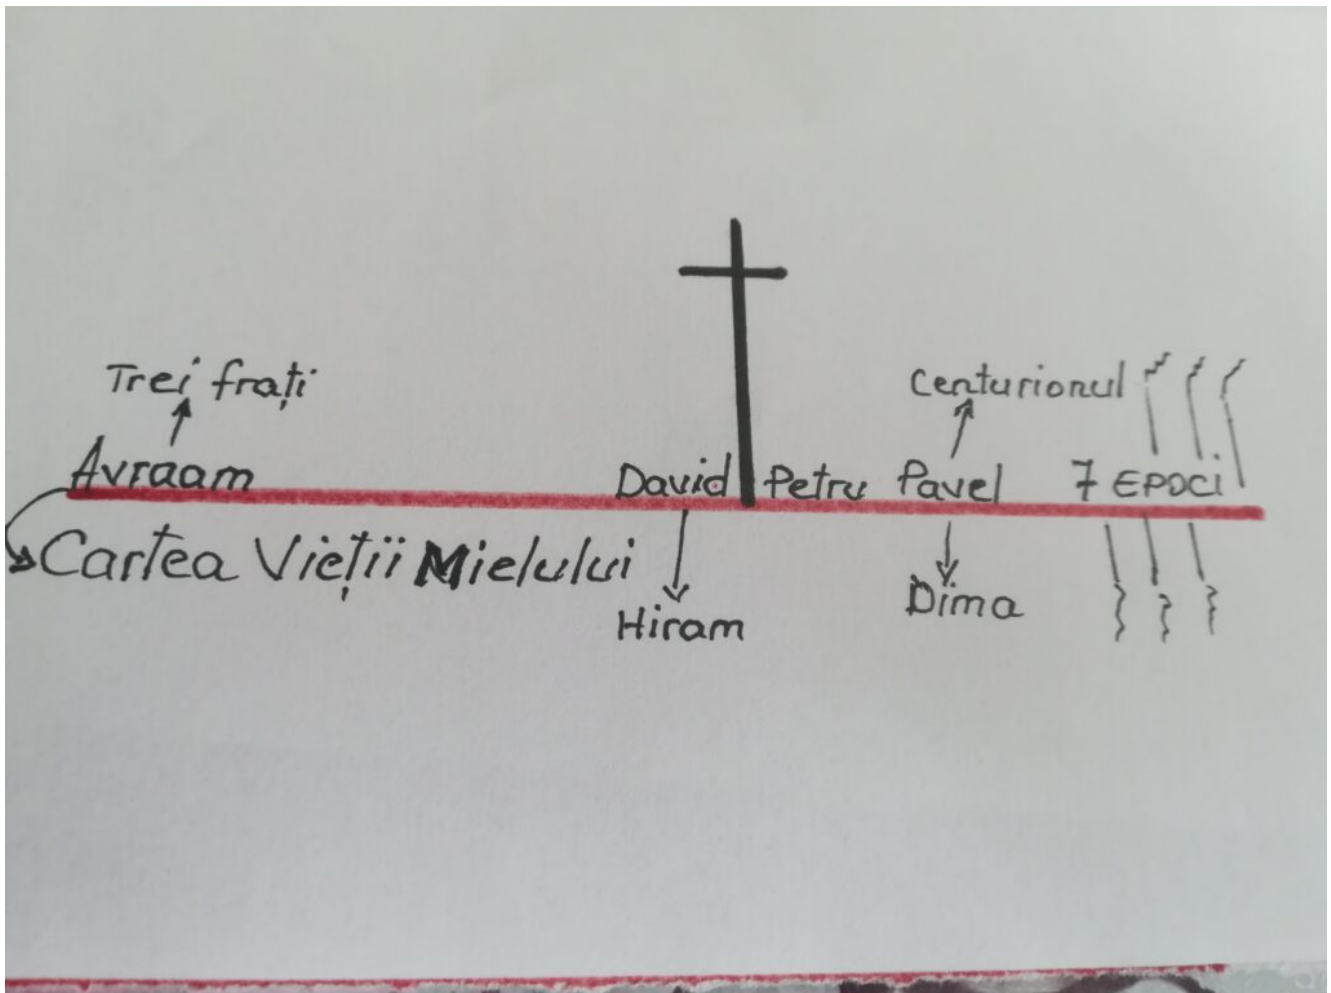 Trei frați
Centurionul
Avraam
David Petru Pavel 7 EPOCI
Cartea Vieții Mielului
Dima
Hiram